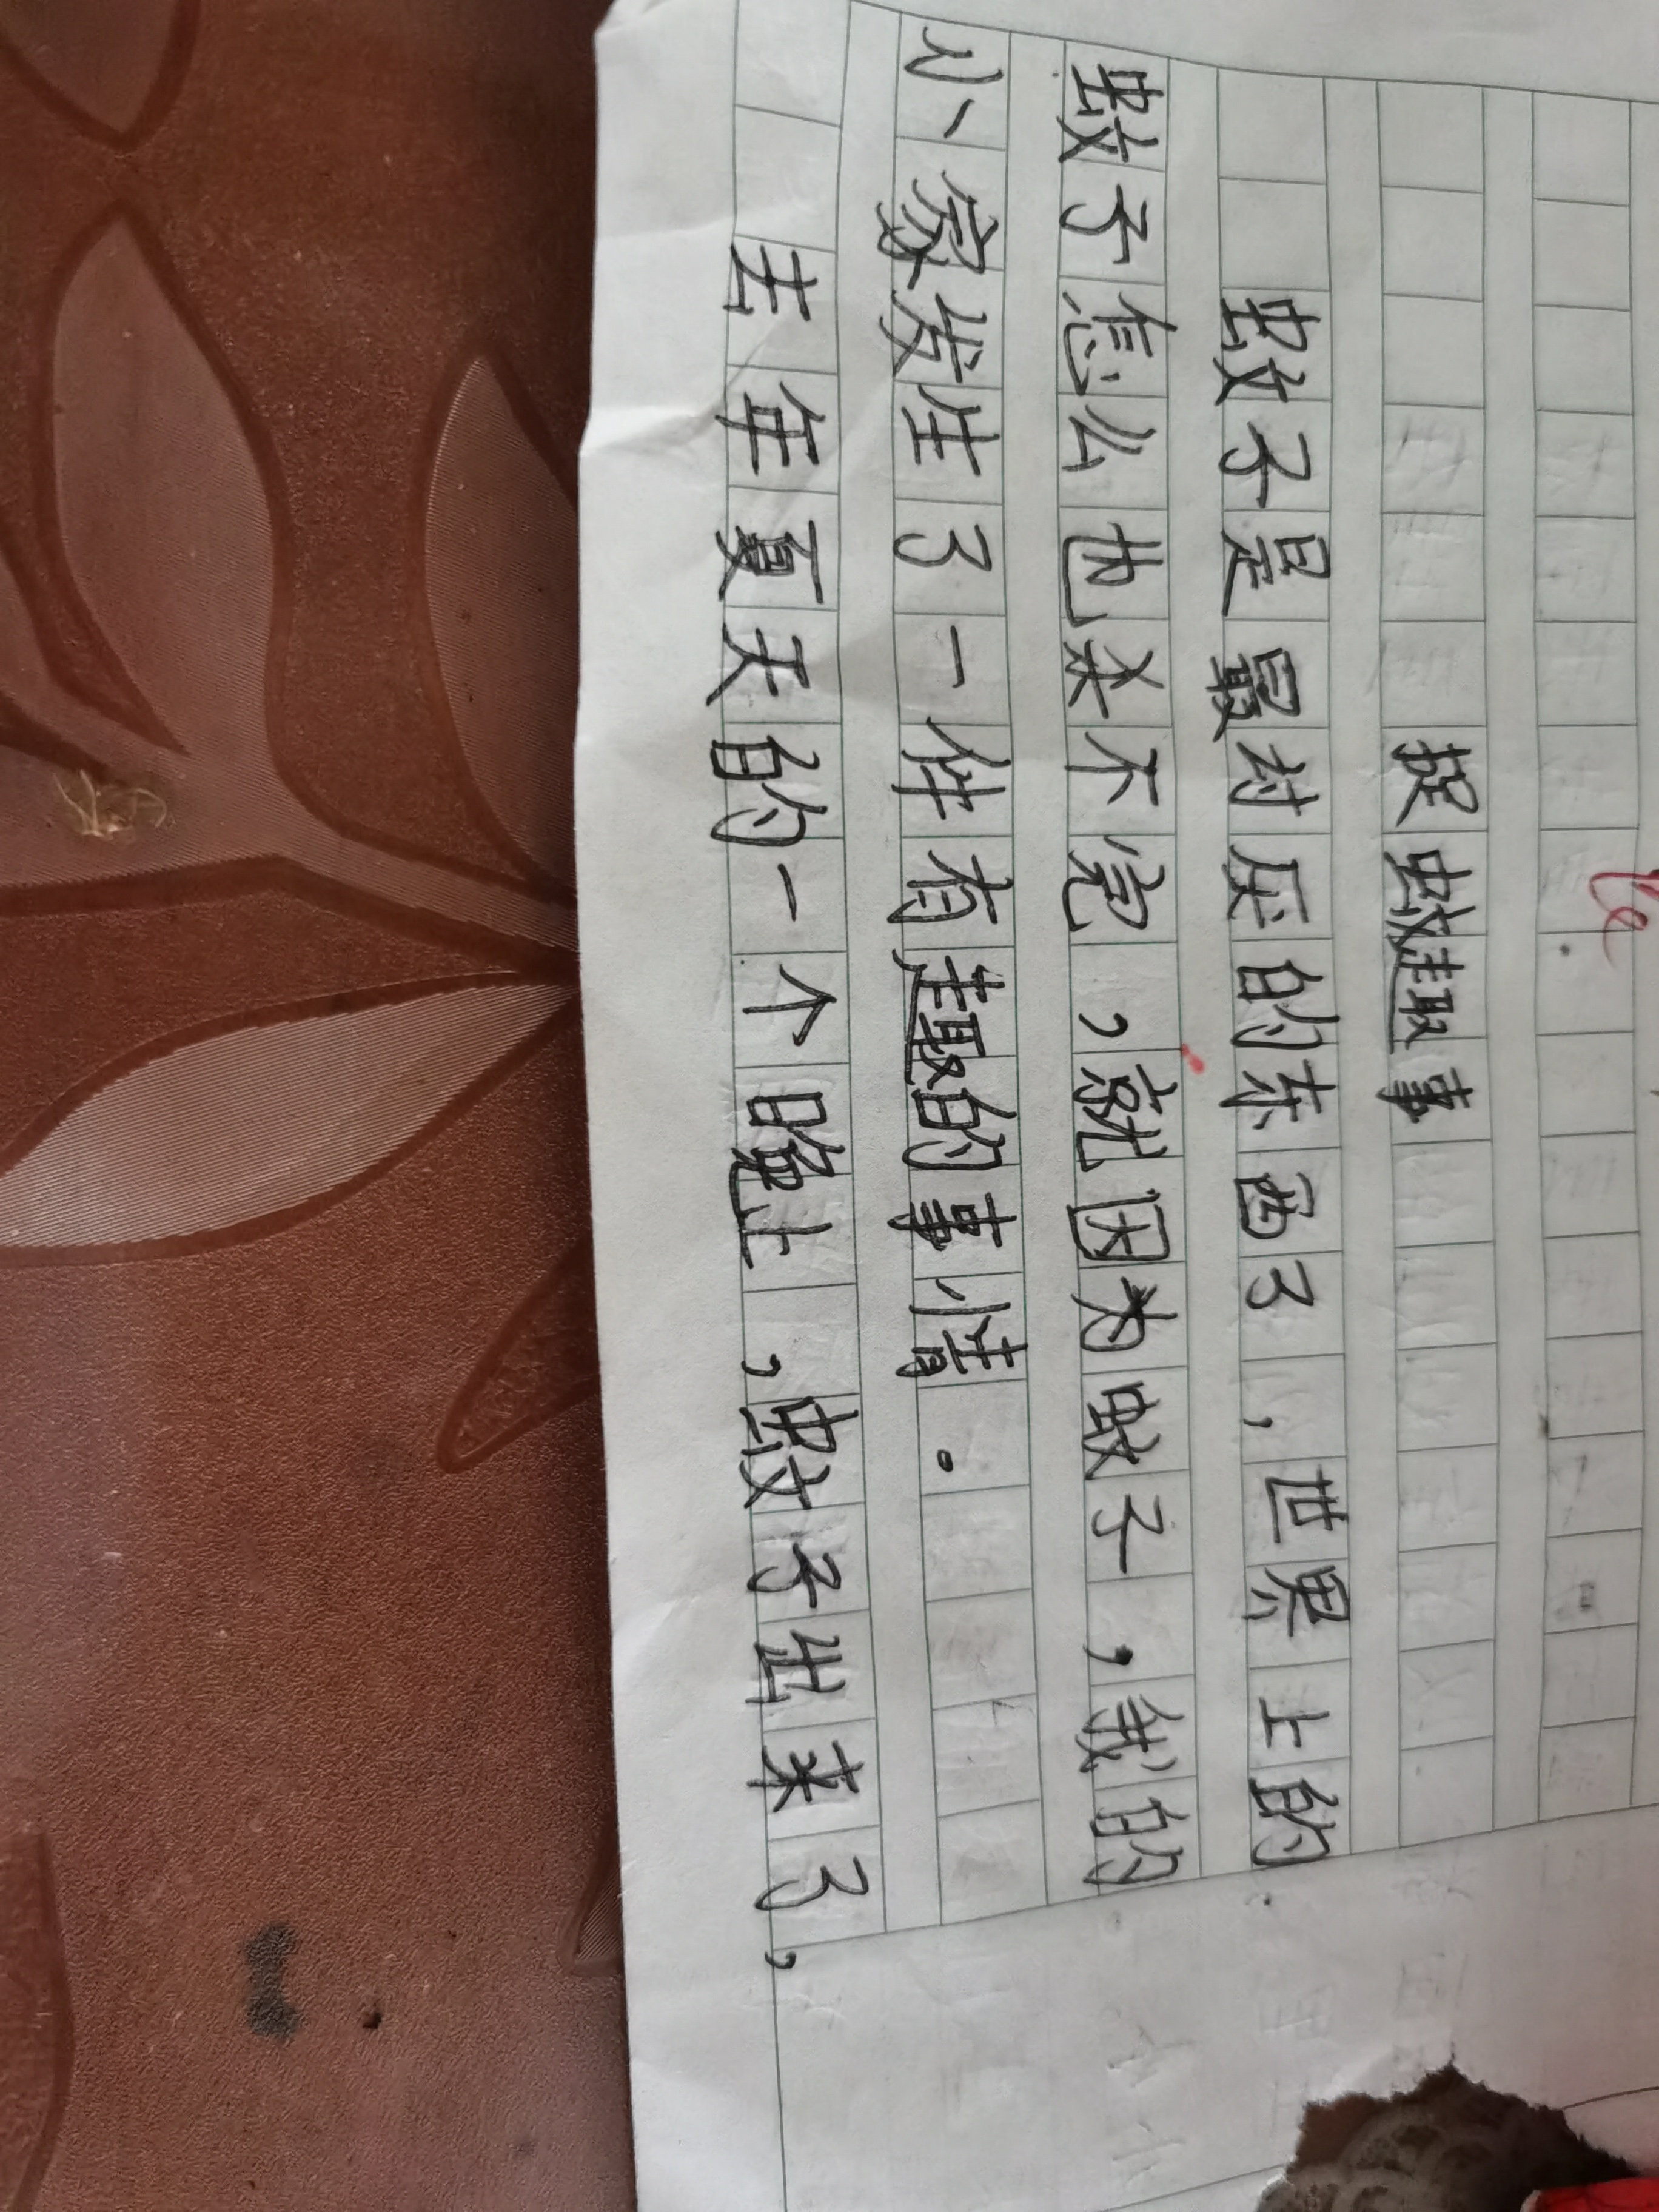 捉蚊趣事
蚊子是最讨厌的东西了，世界上的
蚊子怎么也杀不完，就因为蚊子，我的
小家发生了一件有趣的事情。
去年夏天的一个晚上，蚊子出来了，